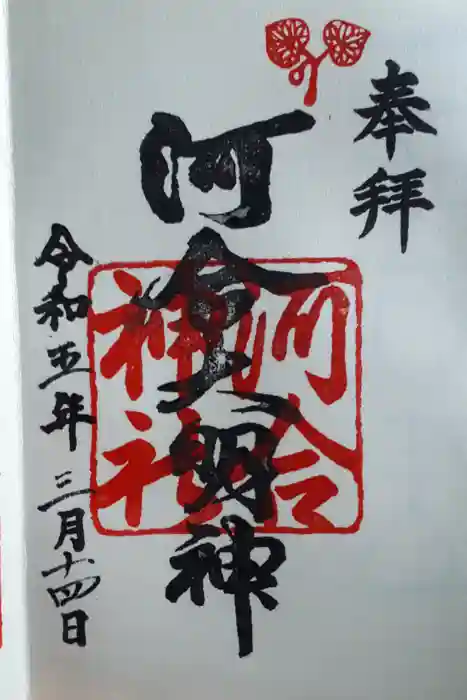 奉拝
河合大明神
河合
神社
令和五年三月十四日